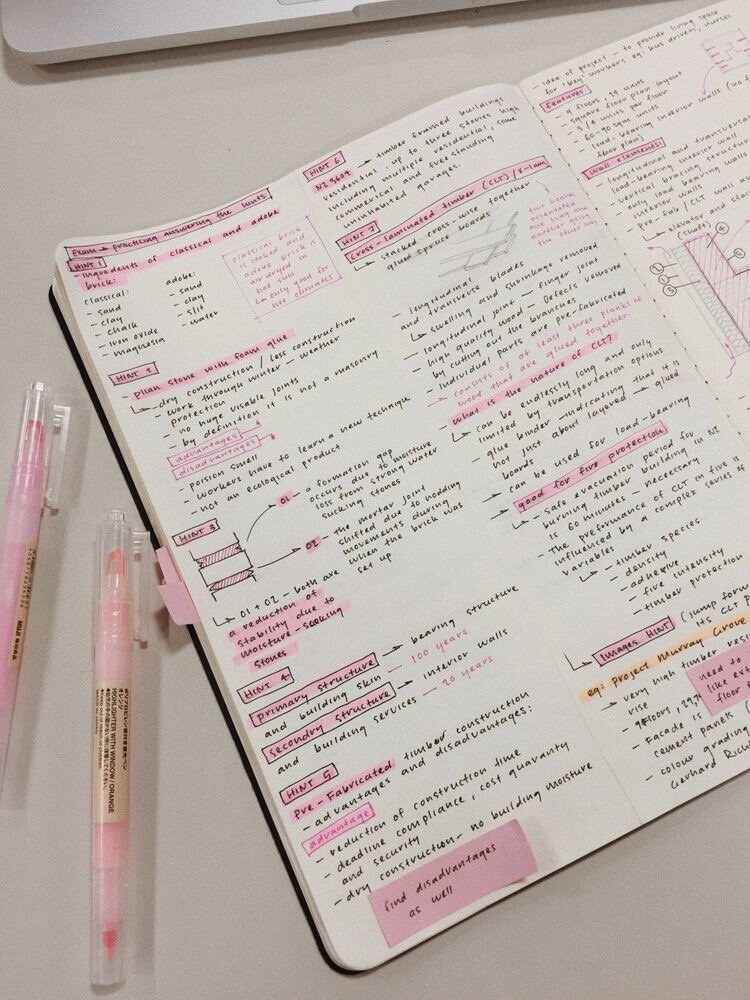 Exam → practicing answering the hints
HINT 1
ingredients of classical and adobe
brick:
classical:
- sand
- clay
- chalk
- iron oxide
- magnesia
adobe:
- sand
- clay
- slit
- water
classical brick
is baked and
adobe brick is
air dryed in
hot sun
↳ only good for
hot climates
HINT 2
- Plan stone with foam glue
↳ dry construction / less construction
- work through winter - weather
protection
- no huge visable joints
- by definition it is not a masonry
advantages
disadvantages
- poision smell
- workers have to learn a new technique
- not an ecological product
HINT 3
01 - a formation gap
occurs due to moisture
loss from strong water
sucking stones
02 - the mortar joint
shifted due to nodding
movements during
when the brick was
set up
↳ 01 + 02 - both are
a reduction of
stability due to
moisture-soaking
stones
HINT 4
primary structure → bearing structure
and building skin — 100 years
secondry structure → interior walls
and building services — 20 years
HINT 5
Pre-Fabricated timber construction
- advantages and disadvantages:
advantage
- reduction of construction time
- deadline compliance, cost quaranty
and security
- dry construction - no building moisture
find disadvantages
as well
HINT 6
NZ 3604 → timber framed buildings
residential, up to three stories high
including multiple residential, some
commerical and free standing
uninhabited garages.
HINT 7
Cross-laminated timber (CLT) / x-lam
↳ stacked cross-wise together
glued spruce boards
two boards
orientated
one way and
another going
the other way
- longitudinal
and transverse blades
↳ swelling and shrinkage removed
- longitudinal joint - finger joint
- high quality wood - Defects removed
by cutting out the branches
- Individual parts are pre-fabricated
- consists of at least three planks of
wood that are glued together.
- what is the nature of CLT?
↳ can be endlessly long and only
limited by transportation options
- glue binder - indicating that it is
not just about layered → glued
boards
→ can be used for load-bearing
→ good for fire protection
↳ - safe evacuation period for
burning timber building in NZ
is 60 minutes - necessary
- The preformance of CLT in fire is
influenced by a complex series of
variables
↳ - timber species
- density
- adhesive
- fire intensity
- timber protection
↳ Images HINT (jump forw
its CLT p
eg: project Murray Grove
→ very high timber resi
rise
- 9 floors, 29
- Facade is
cement panels
- colour grading
Gerhard Rich
need to
like ext
floor
- idea of project - to provide living space
for 'key' workers eg. bus drivers, nurses.
features:
- 9 floors, 29 units
- square floor plan layout
- 3/4 units per floor
- 60-90 sqm units
- load-bearing interior walls (no
floor plan)
Wall elements:
- longitudinal and transversal
load-bearing interior wall
- vertical bracing structur
- only load bearing walls
- pre-fab / CLT wall and
→ elevator and stai
(shaft)
1
2
3
4
5
MUJI 無印良品
HIGHLIGHTER WITH WINDOW / ORANGE
オレンジ